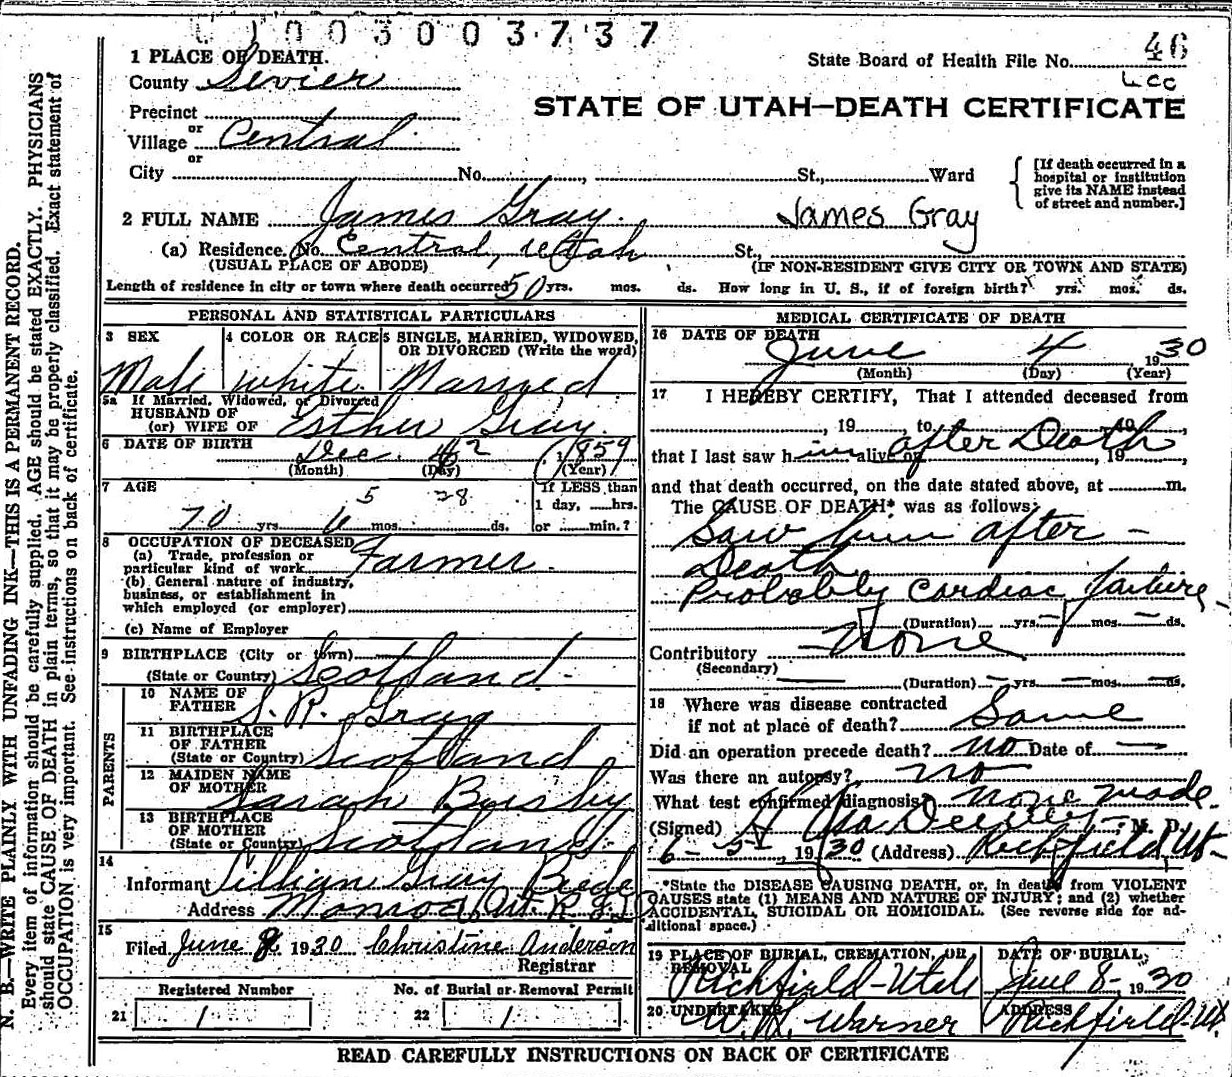 0 1 0 0 3 0 0 3 7 3 7
1 PLACE OF DEATH.
County Sevier
State Board of Health File No. 46
LCC
STATE OF UTAH—DEATH CERTIFICATE
Precinct
or
Village Central
or
City No. , St., Ward
[If death occurred in a hospital or institution give its NAME instead of street and number.]
2 FULL NAME James Gray. James Gray
(a) Residence. No. Central, Utah St.,
(USUAL PLACE OF ABODE) (IF NON-RESIDENT GIVE CITY OR TOWN AND STATE)
Length of residence in city or town where death occurred 50 yrs. mos. ds. How long in U. S., if of foreign birth? yrs. mos. ds.
PERSONAL AND STATISTICAL PARTICULARS
3 SEX
Male
4 COLOR OR RACE
White
5 SINGLE, MARRIED, WIDOWED, OR DIVORCED (Write the word)
Married
5a If Married, Widowed, or Divorced
HUSBAND OF
(or) WIFE OF Esther Gray.
6 DATE OF BIRTH Dec. 2 1859
(Month) (Day) (Year)
7 AGE
5 28
70 yrs. 6 mos. ds.
If LESS than 1 day, hrs. or min.?
8 OCCUPATION OF DECEASED
(a) Trade, profession or particular kind of work Farmer.
(b) General nature of industry, business, or establishment in which employed (or employer)
(c) Name of Employer
9 BIRTHPLACE (City or town)
(State or Country) Scotland.
PARENTS
10 NAME OF FATHER S. R. Gray
11 BIRTHPLACE OF FATHER
(State or Country) Scotland
12 MAIDEN NAME OF MOTHER Sarah Busby
13 BIRTHPLACE OF MOTHER
(State or Country) Scotland
14
Informant Lillian Gray
Address Monroe, Ut. R.F.D.
15
Filed June 8 1930 Christine Anderson
Registrar
Registered Number
21 1
No. of Burial or Removal Permit
22 1
MEDICAL CERTIFICATE OF DEATH
16 DATE OF DEATH
June 4 1930
(Month) (Day) (Year)
17 I HEREBY CERTIFY, That I attended deceased from
, 19 , to , 19 ,
that I last saw him alive on after Death , 19 ,
and that death occurred, on the date stated above, at m.
The CAUSE OF DEATH* was as follows:
Saw him after —
Death
Probably Cardiac failure
(Duration) yrs. mos. ds.
Contributory None
(Secondary)
(Duration) yrs. mos. ds.
18 Where was disease contracted
if not at place of death? Same
Did an operation precede death? no Date of —
Was there an autopsy? no
What test confirmed diagnosis? none made.
(Signed) M. D.
6-5, 1930 (Address) Richfield Ut-
*State the DISEASE CAUSING DEATH, or, in death from VIOLENT CAUSES state (1) MEANS AND NATURE OF INJURY; and (2) whether ACCIDENTAL, SUICIDAL OR HOMICIDAL. (See reverse side for additional space.)
19 PLACE OF BURIAL, CREMATION, OR REMOVAL
Richfield-Utah
DATE OF BURIAL,
June 8 1930
20 UNDERTAKER
W. H. Warner
ADDRESS
Richfield-Ut
READ CAREFULLY INSTRUCTIONS ON BACK OF CERTIFICATE
N. B.—WRITE PLAINLY WITH UNFADING INK—THIS IS A PERMANENT RECORD.
Every item of information should be carefully supplied. AGE should be stated EXACTLY. PHYSICIANS
should state CAUSE OF DEATH in plain terms, so that it may be properly classified. Exact statement of
OCCUPATION is very important. See instructions on back of certificate.